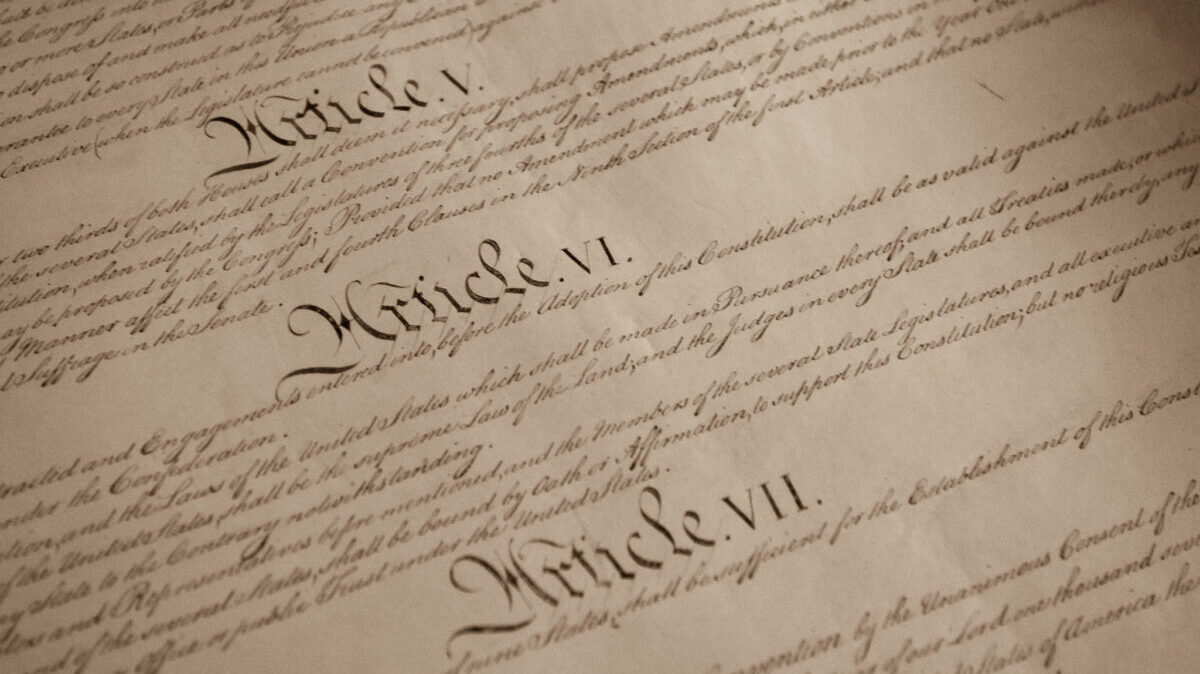 Congress into
or more States, or Parts of
dispose of and make all needful
shall be so construed, as to Prejudice any
to every State in this Union a Republican
Executive (when the Legislature cannot be convened) against
Article. V.
two thirds of both Houses shall deem it necessary, shall propose Amendments
the several States, shall call a Convention for proposing Amendments, which, in either
when ratified by the Legislatures of three fourths of the several States, or by Conventions in
may be proposed by the Congress; Provided that no Amendment which may be made prior to the Year One
Manner affect the first and fourth Clauses in the Ninth Section of the first Article; and that no State,
Suffrage in the Senate.
Article. VI.
and Engagements entered into, before the Adoption of this Constitution, shall be as valid against the United
under the Confederation.
and the Laws of the United States which shall be made in Pursuance thereof; and all Treaties made, or
of the United States, shall be the supreme Law of the Land; and the Judges in every State shall be bound thereby, any
State to the Contrary notwithstanding.
and Representatives before mentioned, and the Members of the several State Legislatures, and all executive
of the several States, shall be bound by Oath or Affirmation, to support this Constitution; but no religious
office or public Trust under the United States.
Article. VII.
nine States, shall be sufficient for the Establishment of this
by the Unanimous Consent of the
of our Lord one thousand
States of America